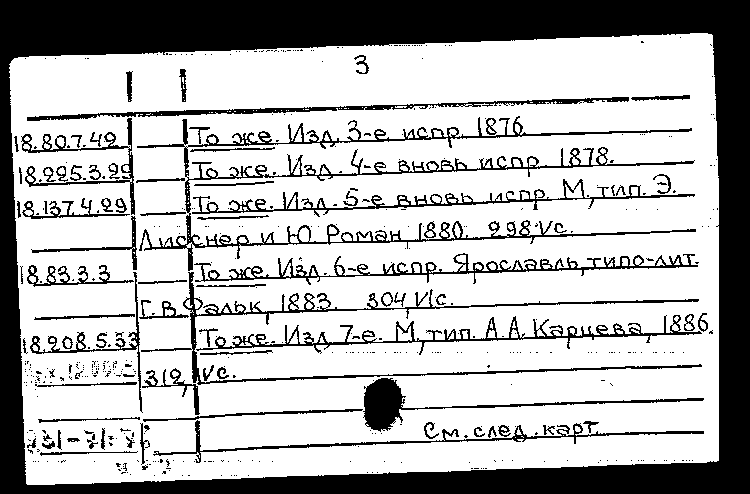 3
18.80.7.49 То же. Изд. 3-е испр. 1876
18.225.3.29 То же. Изд. 4-е вновь испр. 1878.
18.137.4.29 То же. Изд. 5-е вновь испр. М., тип. Э.
Лисснер и Ю. Роман, 1880. 298, V с.
18.83.3.3 То же. Изд. 6-е испр. Ярославль, типо-лит.
Г. В. Фальк, 1883. 304, VI с.
18.208.5.33 То же. Изд. 7-е. М., тип. А. А. Карцева, 1886.
312, V с.
См. след. карт.